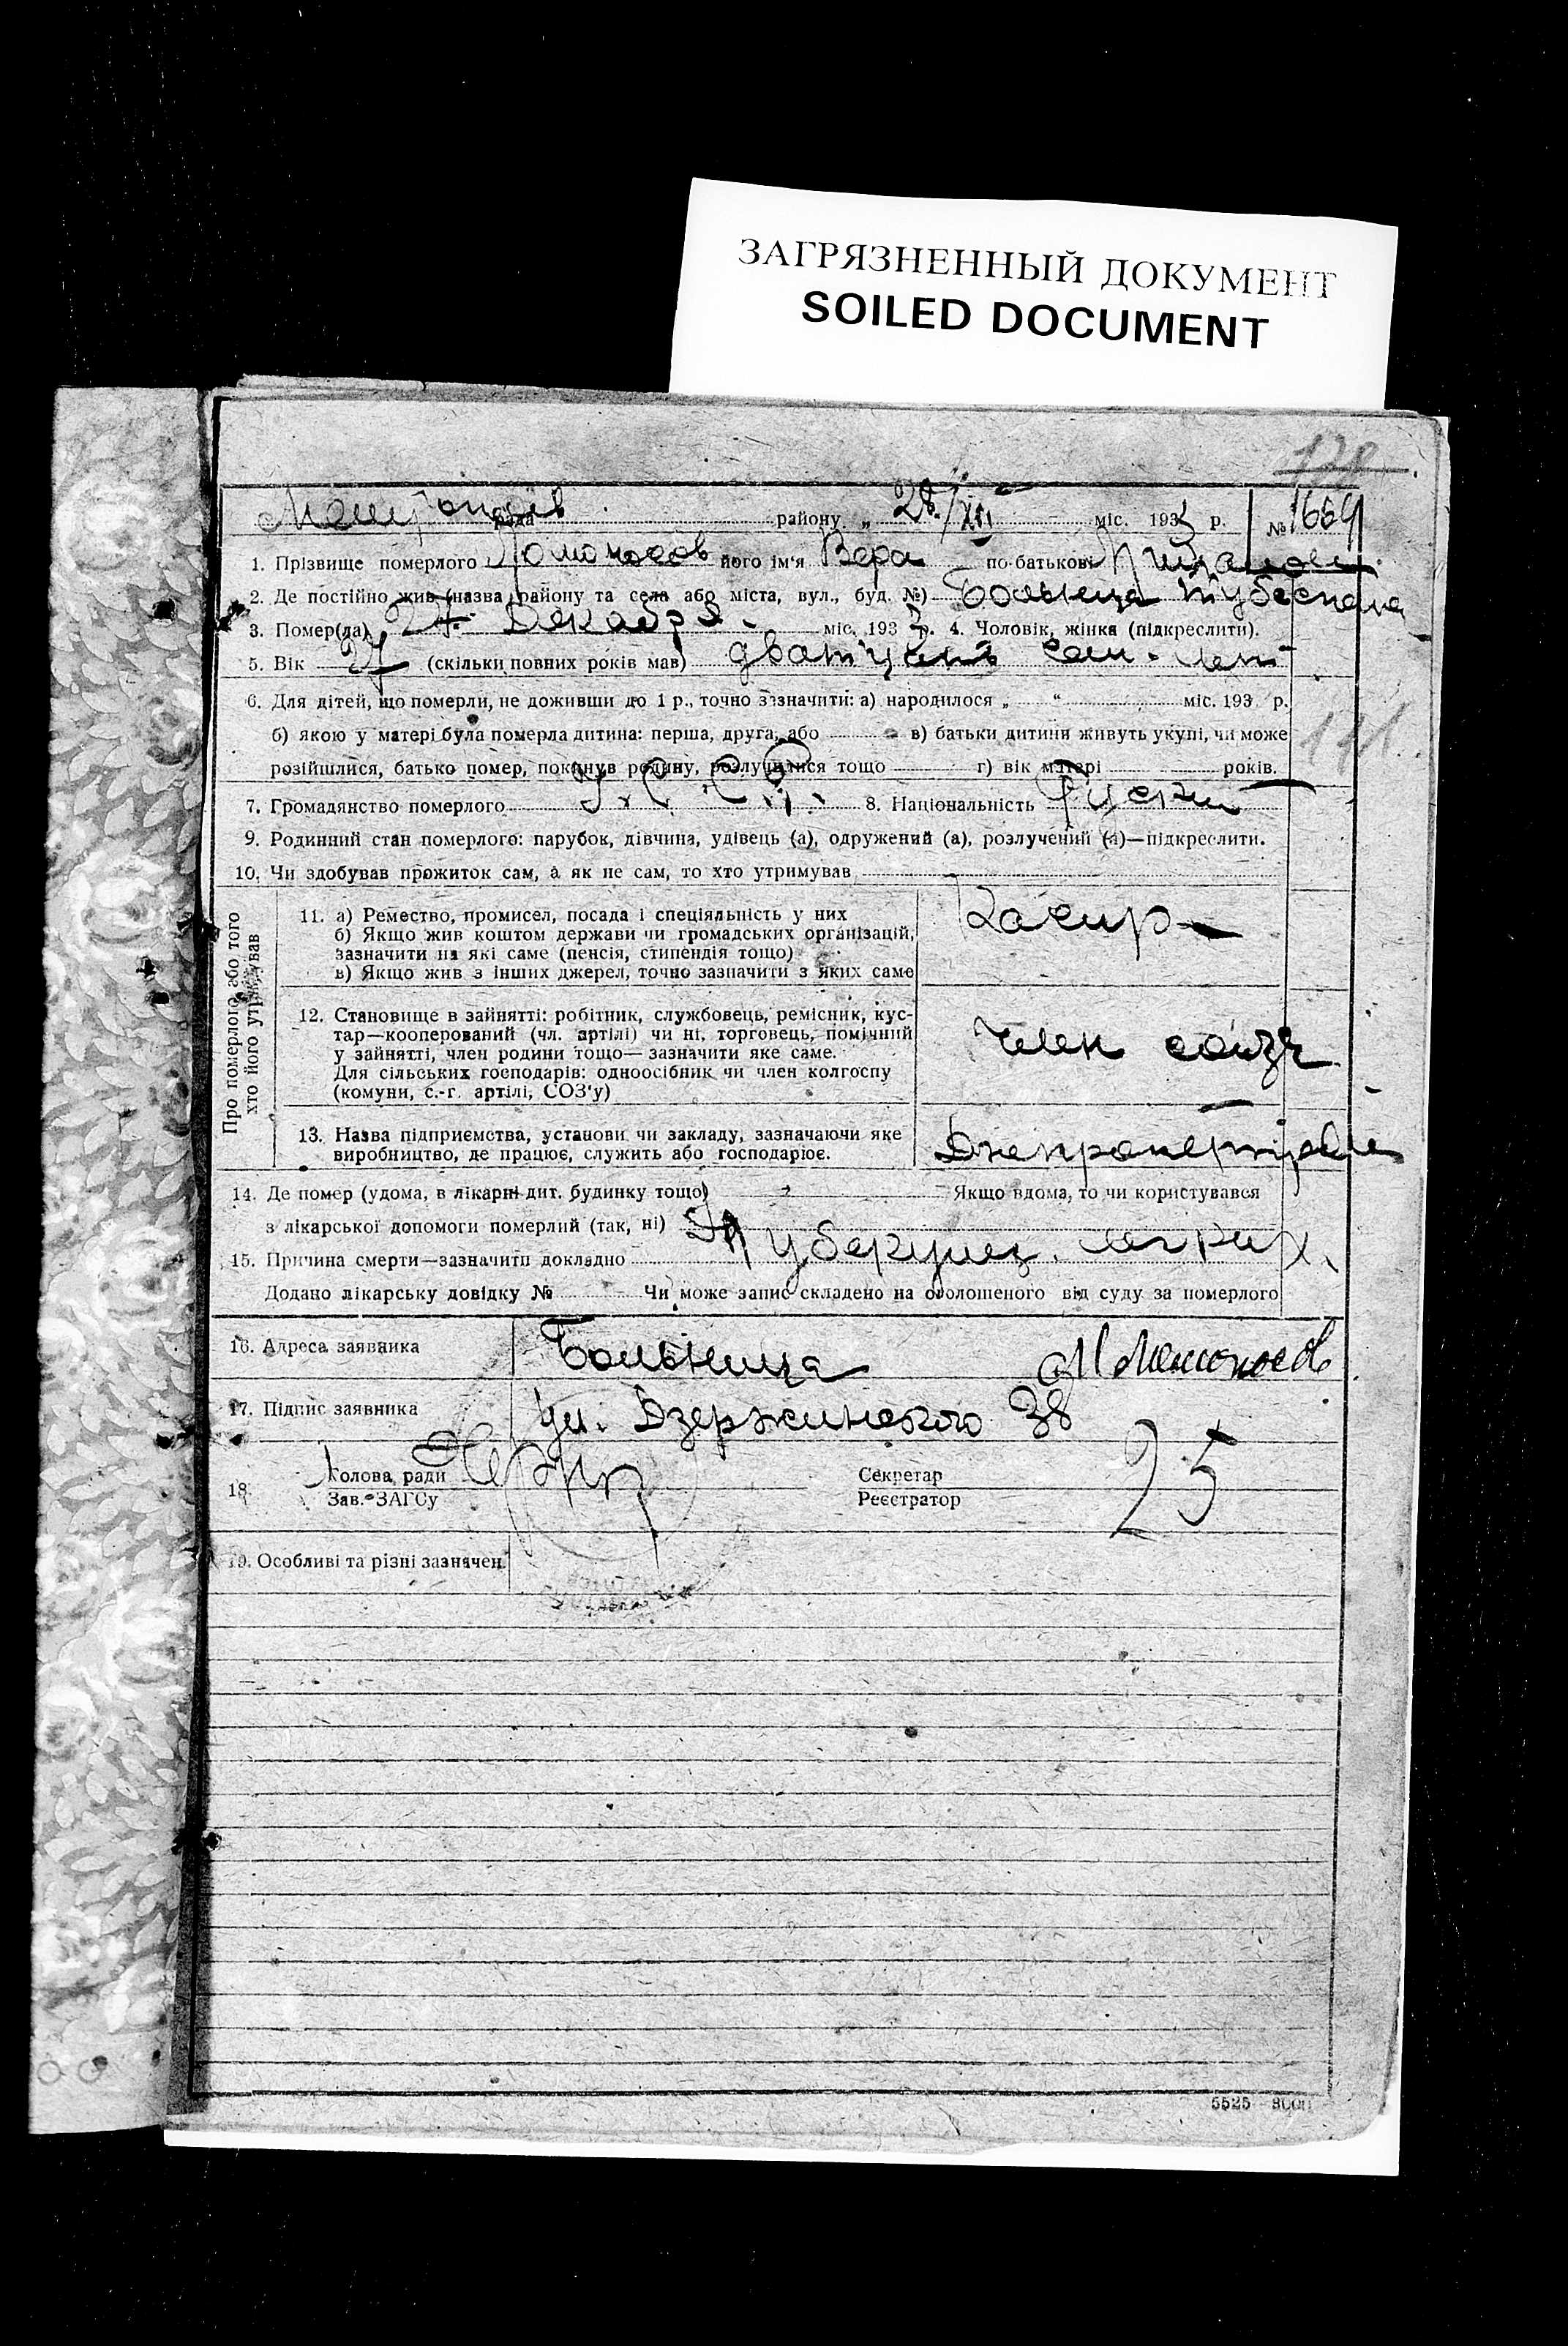 ЗАГРЯЗНЕННЫЙ ДОКУМЕНТ
SOILED DOCUMENT
рада району „ 28/XII міс. 193 р. № 1669
1. Прізвище померлого Ломоносов його ім'я Вера по батькові
2. Де постійно жив (назва району та села або міста, вул., буд. №) Больница
3. Помер(ла) 27 Декабря міс. 193 р. 4. Чоловік, жінка (підкреслити).
5. Вік 27 (скільки повних років мав) двадцать сем лет
6. Для дітей, що померли, не доживши до 1 р., точно зазначити: а) народилося „ “ міс. 193 р.
б) якою у матері була померла дитина: перша, друга, або в) батьки дитини живуть укупі, чи може
розійшлися, батько помер, покинув родину, розлучилися тощо г) вік матері років.
7. Громадянство померлого У.С.С.Р. 8. Національність Руский
9. Родинний стан померлого: парубок, дівчина, удівець (а), одружений (а), розлучений (а)—підкреслити.
10. Чи здобував прожиток сам, а як не сам, то хто утримував
Про померлого або того
хто його утримував
11. а) Ремество, промисел, посада і спеціяльність у них
б) Якщо жив коштом держави чи громадських організацій,
зазначити на які саме (пенсія, стипендія тощо)
в) Якщо жив з інших джерел, точно зазначити з яких саме
Касир
12. Становище в зайнятті: робітник, службовець, ремісник, кус-
тар—кооперований (чл. артілі) чи ні, торговець, помічний
у зайнятті, член родини тощо— зазначити яке саме.
Для сільських господарів: одноосібник чи член колгоспу
(комуни, с.-г. артілі, СОЗ'у)
член союза
13. Назва підприємства, установи чи закладу, зазначаючи яке
виробництво, де працює, служить або господарює.
14. Де помер (удома, в лікарні дит. будинку тощо) Якщо вдома, то чи користувався
з лікарської допомоги померлий (так, ні)
15. Причина смерти—зазначити докладно Туберкулез легких
Додано лікарську довідку № Чи може запис складено на оголошеного від суду за померлого
16. Адреса заявника Больница М Ломоносов
17. Підпис заявника ул. Дзержинского 38
18. Голова ради Секретар
Зав. ЗАГСу Реєстратор
25
19. Особливі та різні зазначен.
5525